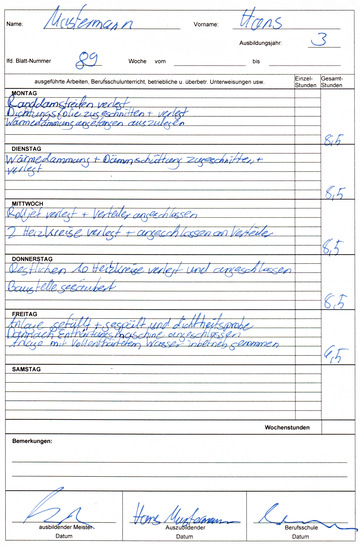 Name: Mustermann Vorname: Hans
Ausbildungsjahr: 3
lfd. Blatt-Nummer 89 Woche vom bis
ausgeführte Arbeiten, Berufsschulunterricht, betriebliche u. überbetr. Unterweisungen usw. Einzel-Stunden Gesamt-Stunden
MONTAG
Randdämstreifen verlegt
Dichtungsfolie zugeschnitten + verlegt
Wärmedämmung angefangen auszulegen
8,5
DIENSTAG
Wärmedämmung + Dämmschüttung zugeschnitten +
verlegt
8,5
MITTWOCH
Rolljet verlegt + Verteiler angeschlossen
2 Heizkreise verlegt + angeschlossen an Verteiler
8,5
DONNERSTAG
Restlichen 10 Heizkreise verlegt und angeschlossen
Baustelle gesäubert
8,5
FREITAG
Anlage gefüllt + gespült und dichtheitsprobe
Danach Enthärtungsmaschine angeschlossen
Anlage mit Vollenthärtetem Wasser inbetrieb genommen
6,5
SAMSTAG
Wochenstunden
Bemerkungen:
Hans Mustermann
ausbildender Meister Auszubildender Berufsschule
Datum Datum Datum